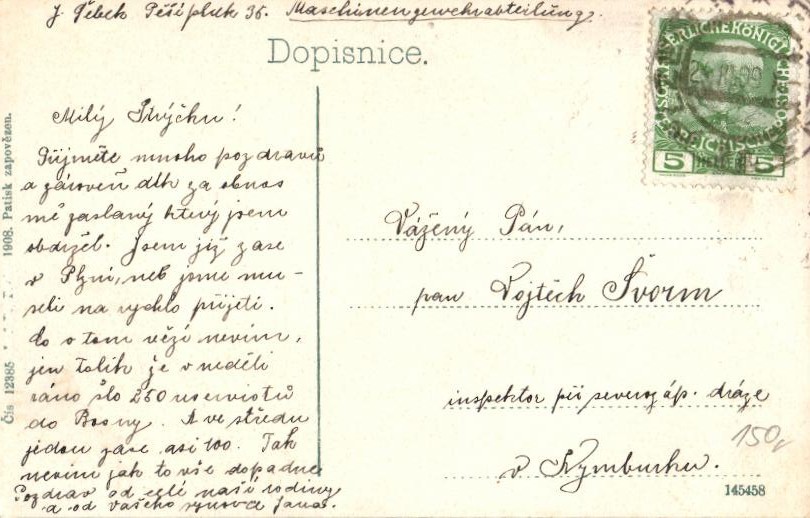 J. Čebek Pěší pluk 35. Maschinengewehrabteilung.
Dopisnice.
Milý Strýčku!
Přijměte mnoho pozdravů
a zároveň dík za obnos
mě zaslaný který jsem
obdržel. Jsem již zase
v Plzni, neb jsme mu-
seli na rychlo přijeti.
Co o tom vězí nevím,
jen tolik že v neděli
ráno šlo 250 reservistů
do Bosny. A ve středu
jedou zase asi 100. Tak
nevím jak to vše dopadne
Pozdrav od celé naší rodiny
a od Vašeho synovce Jana.
Vážený Pán,
pan Vojtěch Švorm
inspektor při severozáp. dráze
v Nymburku.
150,
145458
Čís 12385 1908. Patisk zapovězen.
5 HELLER 5